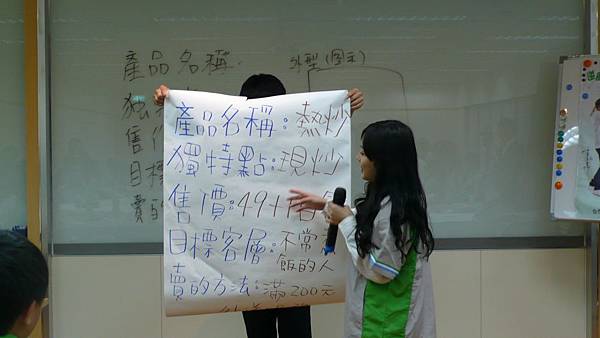 產品名稱:
外型(圖示)
獨
售
目標
賣的
產品名稱:熱炒
獨特點:現炒
售價:49+
目標客層:不常
飯的人
賣的方法:滿200元